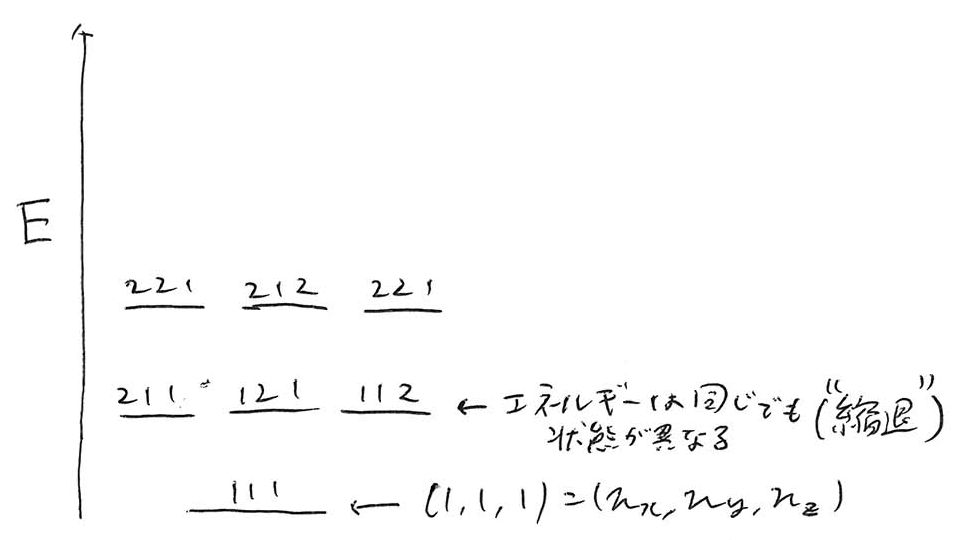 E
221 212 221
211 121 112 ← エネルギーは同じでも (“縮退”)
状態が異なる
111 ← (1,1,1)=(nx,ny,nz)